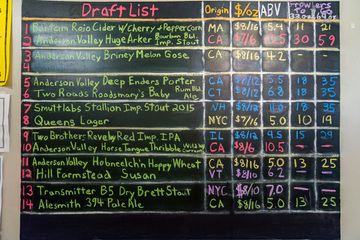 Draft List Origin $/oz ABV Growlers
1 Bantam Rojo Cider w/Cherry & Peppercorn MA $8/16 5.4 21
2 Anderson Valley Huge Arker Bourbon Bbl. Imp. Stout CA 30 59
3 Anderson Valley Briney Melon Gose CA $8/16 4.2
4
5 Anderson Valley Deep Enders Porter CA 18 35
6 Two Roads Roadsmary's Baby Rum Bbl. Ale CT $8/12 6.8 18 35
7 Smuttlabs Stallion Imp. Stout 2015 NH 18 35
8 Queens Lager NYC $7/16 5.0 10 19
9 Two Brothers Revelry Red Imp. IPA IL 15 29
10 Anderson Valley Horse Tongue Wild CA $8/6 10.5
11 Anderson Valley Hoppy Wheat CA $8/16 5.0 13 25
12 Hill Farmstead Susan VT 6.2
13 Transmitter B5 Dry Brett Stout NYC $8/10 7.0
14 Alesmith .394 Pale Ale CA $8/16 5.0 13 25